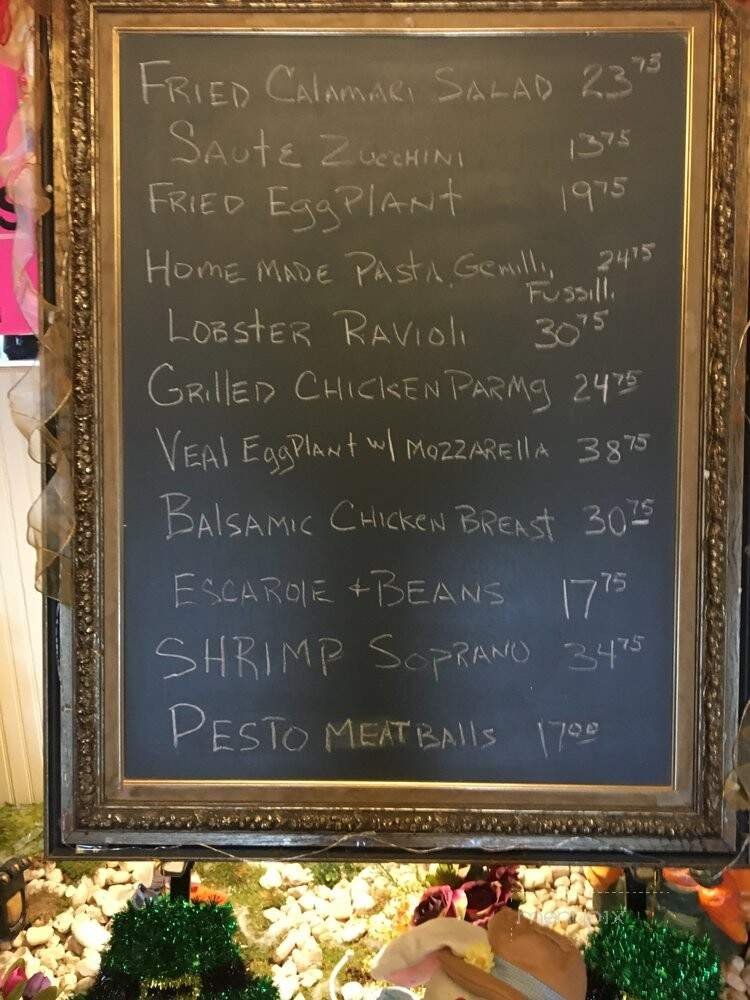 FRIED CALAMARI SALAD 23 75
SAUTE ZUCCHINI 13 75
FRIED EggPlANt 19 75
HOME MADE PASTA, Gemilli, 24 75
Fussilli
LOBSTER RAVIOli 30 75
GRillED CHICKEN PARMg 24 75
VEAl EggPlANt w/ MOZZAREllA 38 75
BALSAMIC CHICKEN BREAST 30 75
ESCAROlE + BEANS 17 75
SHRIMP SOPRANO 34 75
PESTO MEATBAlls 17 00